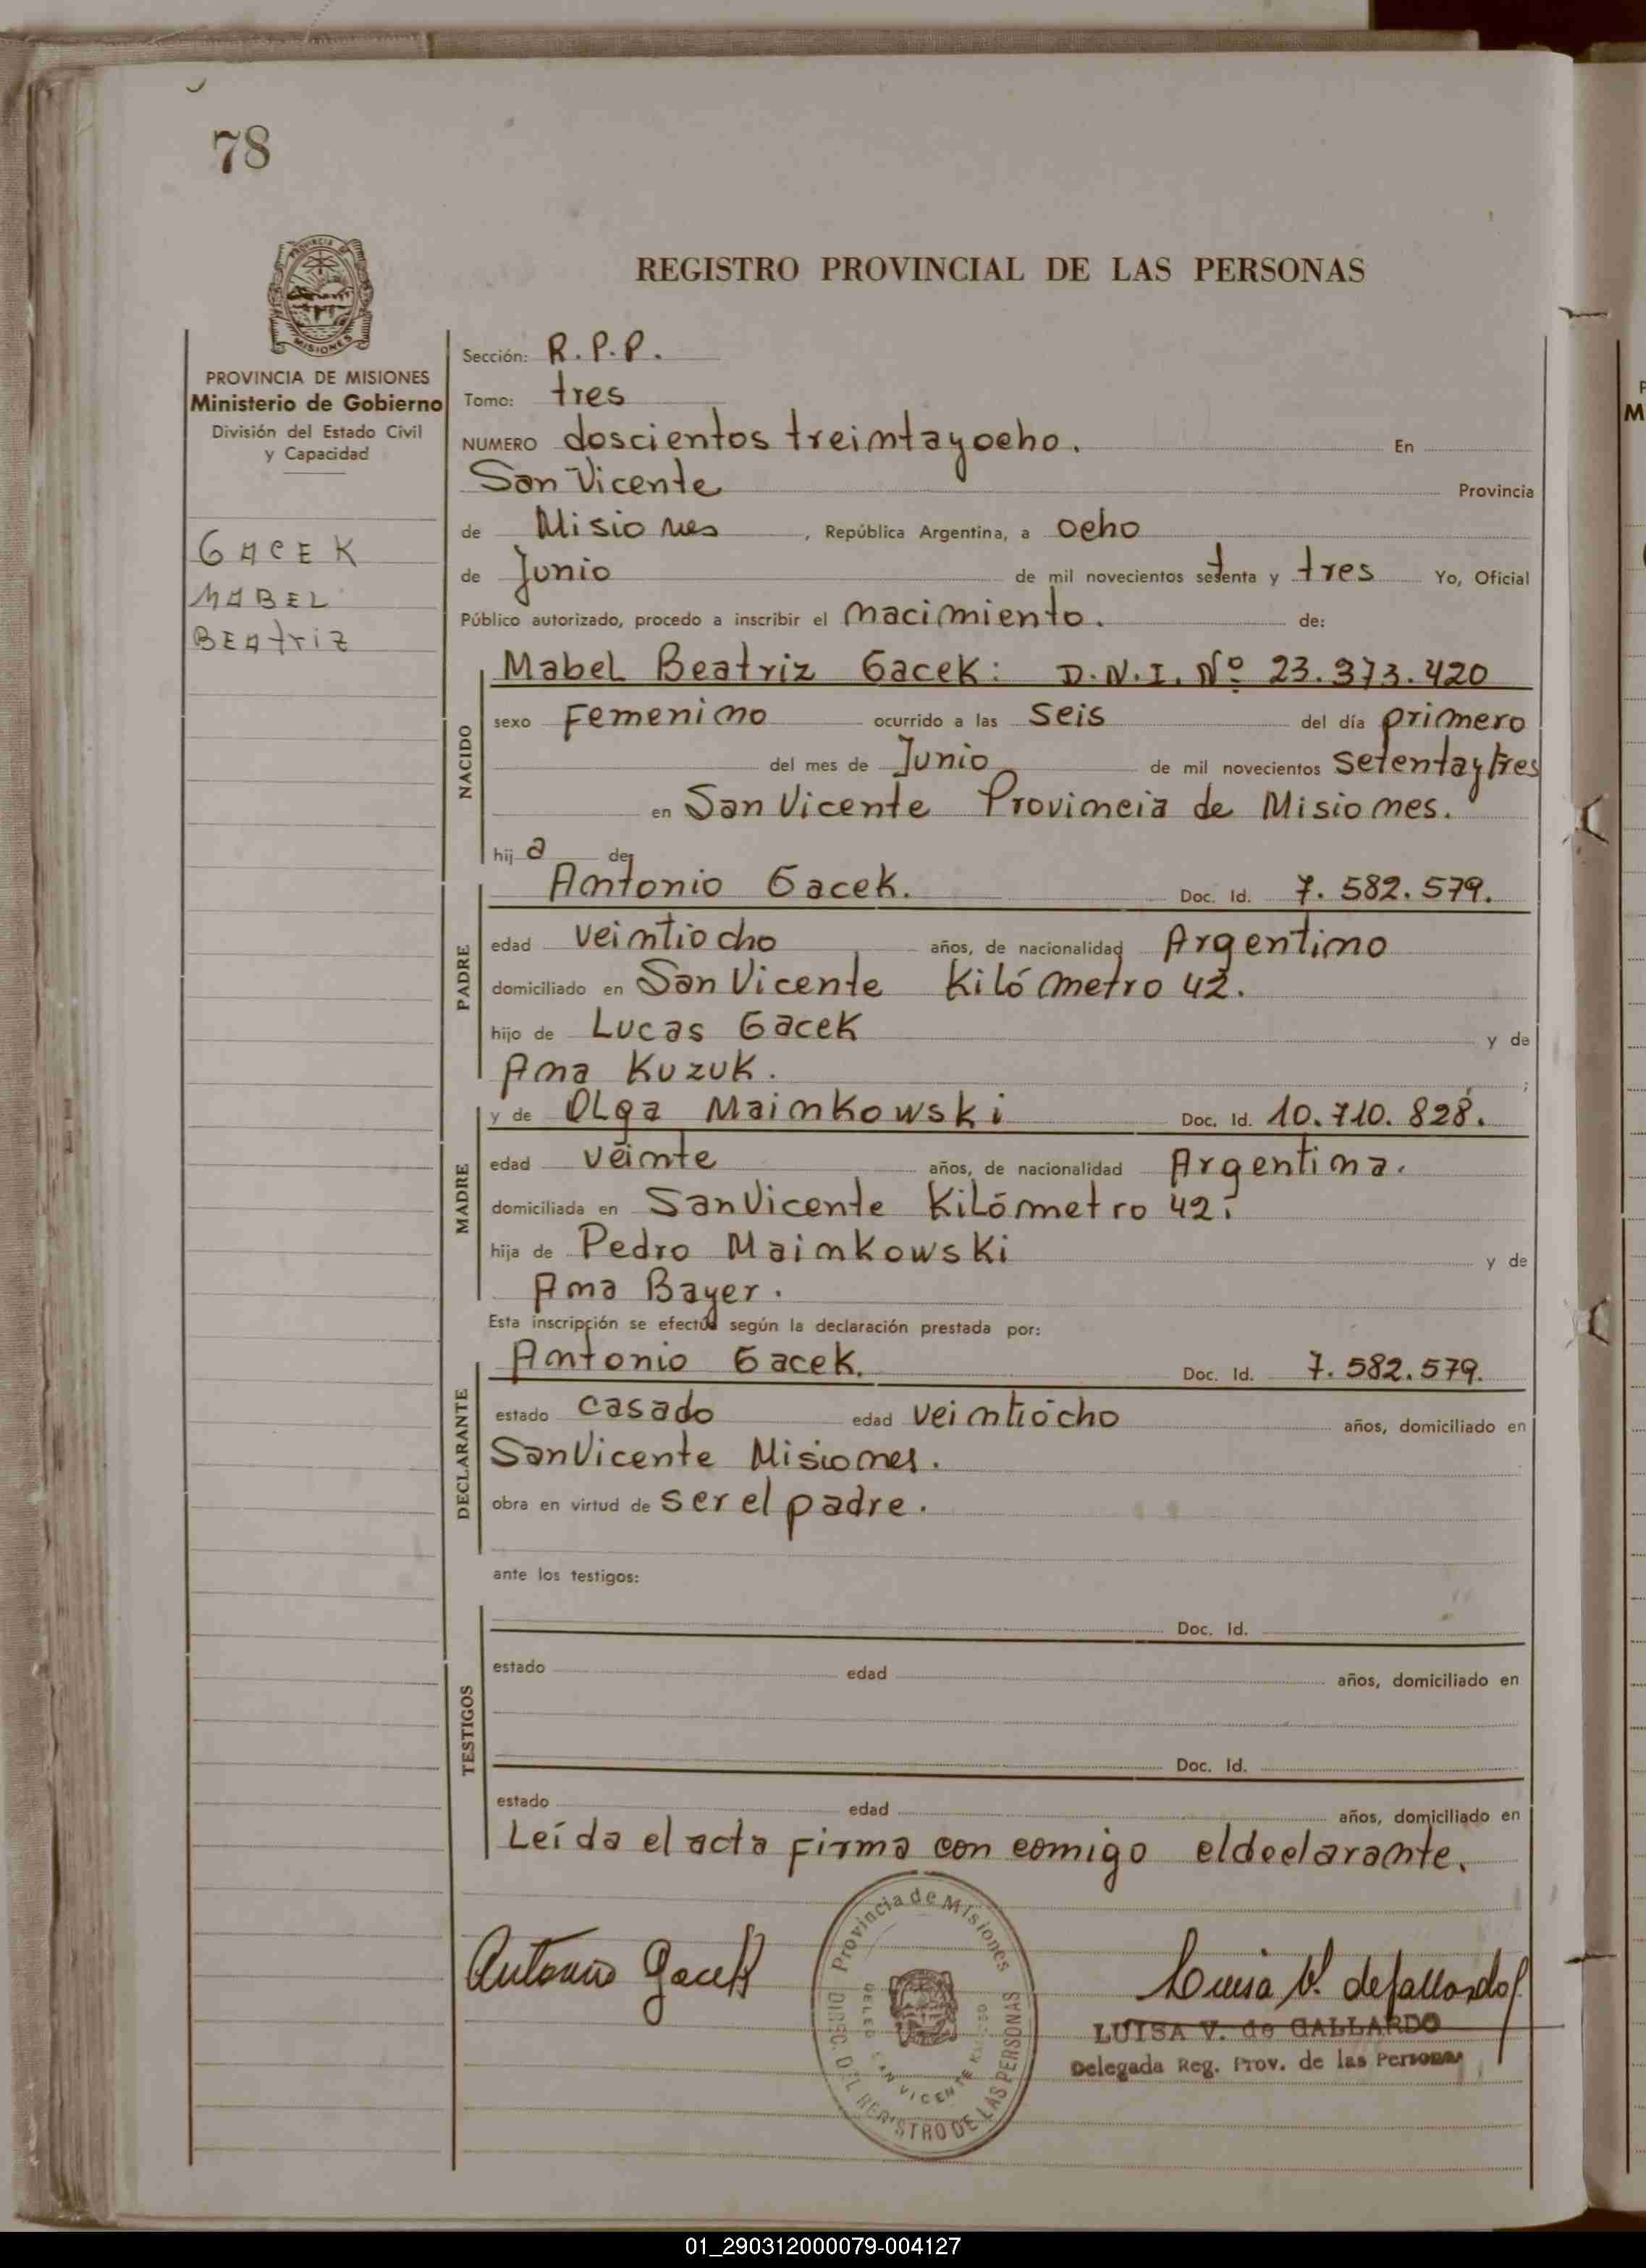 78
REGISTRO PROVINCIAL DE LAS PERSONAS
PROVINCIA DE MISIONES
Ministerio de Gobierno
División del Estado Civil
y Capacidad
GACEK
MABEL
BEAtriz
Sección: R.P.P.
Tomo: tres
NUMERO doscientos treintayocho. En
San Vicente Provincia
de Misiones, República Argentina, a ocho
de Junio de mil novecientos setenta y tres Yo, Oficial
Público autorizado, procedo a inscribir el nacimiento. de:
NACIDO
Mabel Beatriz Gacek: D.N.I. Nº 23.373.420
sexo Femenino ocurrido a las seis del día primero
del mes de Junio de mil novecientos setentaytres
en San Vicente Provincia de Misiones.
hij a de
PADRE
Antonio Gacek. Doc. Id. 7.582.579.
edad veintiocho años, de nacionalidad Argentino
domiciliado en San Vicente Kilómetro 42.
hijo de Lucas Gacek y de
Ana Kuzuk. ;
MADRE
y de Olga Mainkowski Doc. Id. 10.710.828.
edad veinte años, de nacionalidad Argentina.
domiciliada en San Vicente Kilómetro 42.
hija de Pedro Mainkowski y de
Ana Bayer.
Esta inscripción se efectúa según la declaración prestada por:
DECLARANTE
Antonio Gacek. Doc. Id. 7.582.579.
estado casado edad veintiocho años, domiciliado en
San Vicente Misiones.
obra en virtud de ser el padre.
ante los testigos:
TESTIGOS
Doc. Id.
estado edad años, domiciliado en
Doc. Id.
estado edad años, domiciliado en
Leída el acta firma con comigo el declarante.
Antonio Gacek
Luisa V. de Gallardo
LUISA V. de GALLARDO
Delegada Reg. Prov. de las Personas
Provincia de Misiones
DIREC. DEL REGISTRO DE LAS PERSONAS
SAN VICENTE
01_290312000079-004127